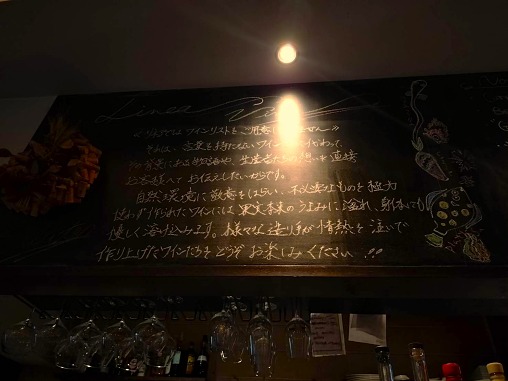 Linea
くりうではワインリストをご用意していません。
それは、言葉を持たないワインにかわって
背景にある物語や、生産者たちの想いを直接
お客様へとお伝えしたいからです。
自然環境に敬意をはらい、不必要なものを極力
使わず造られたワインには果実本来のうまみに溢れ、身体にも
優しく溶け込みます。様々な造り手が情熱を注いで
作り上げたワインたちをどうぞお楽しみください!!!